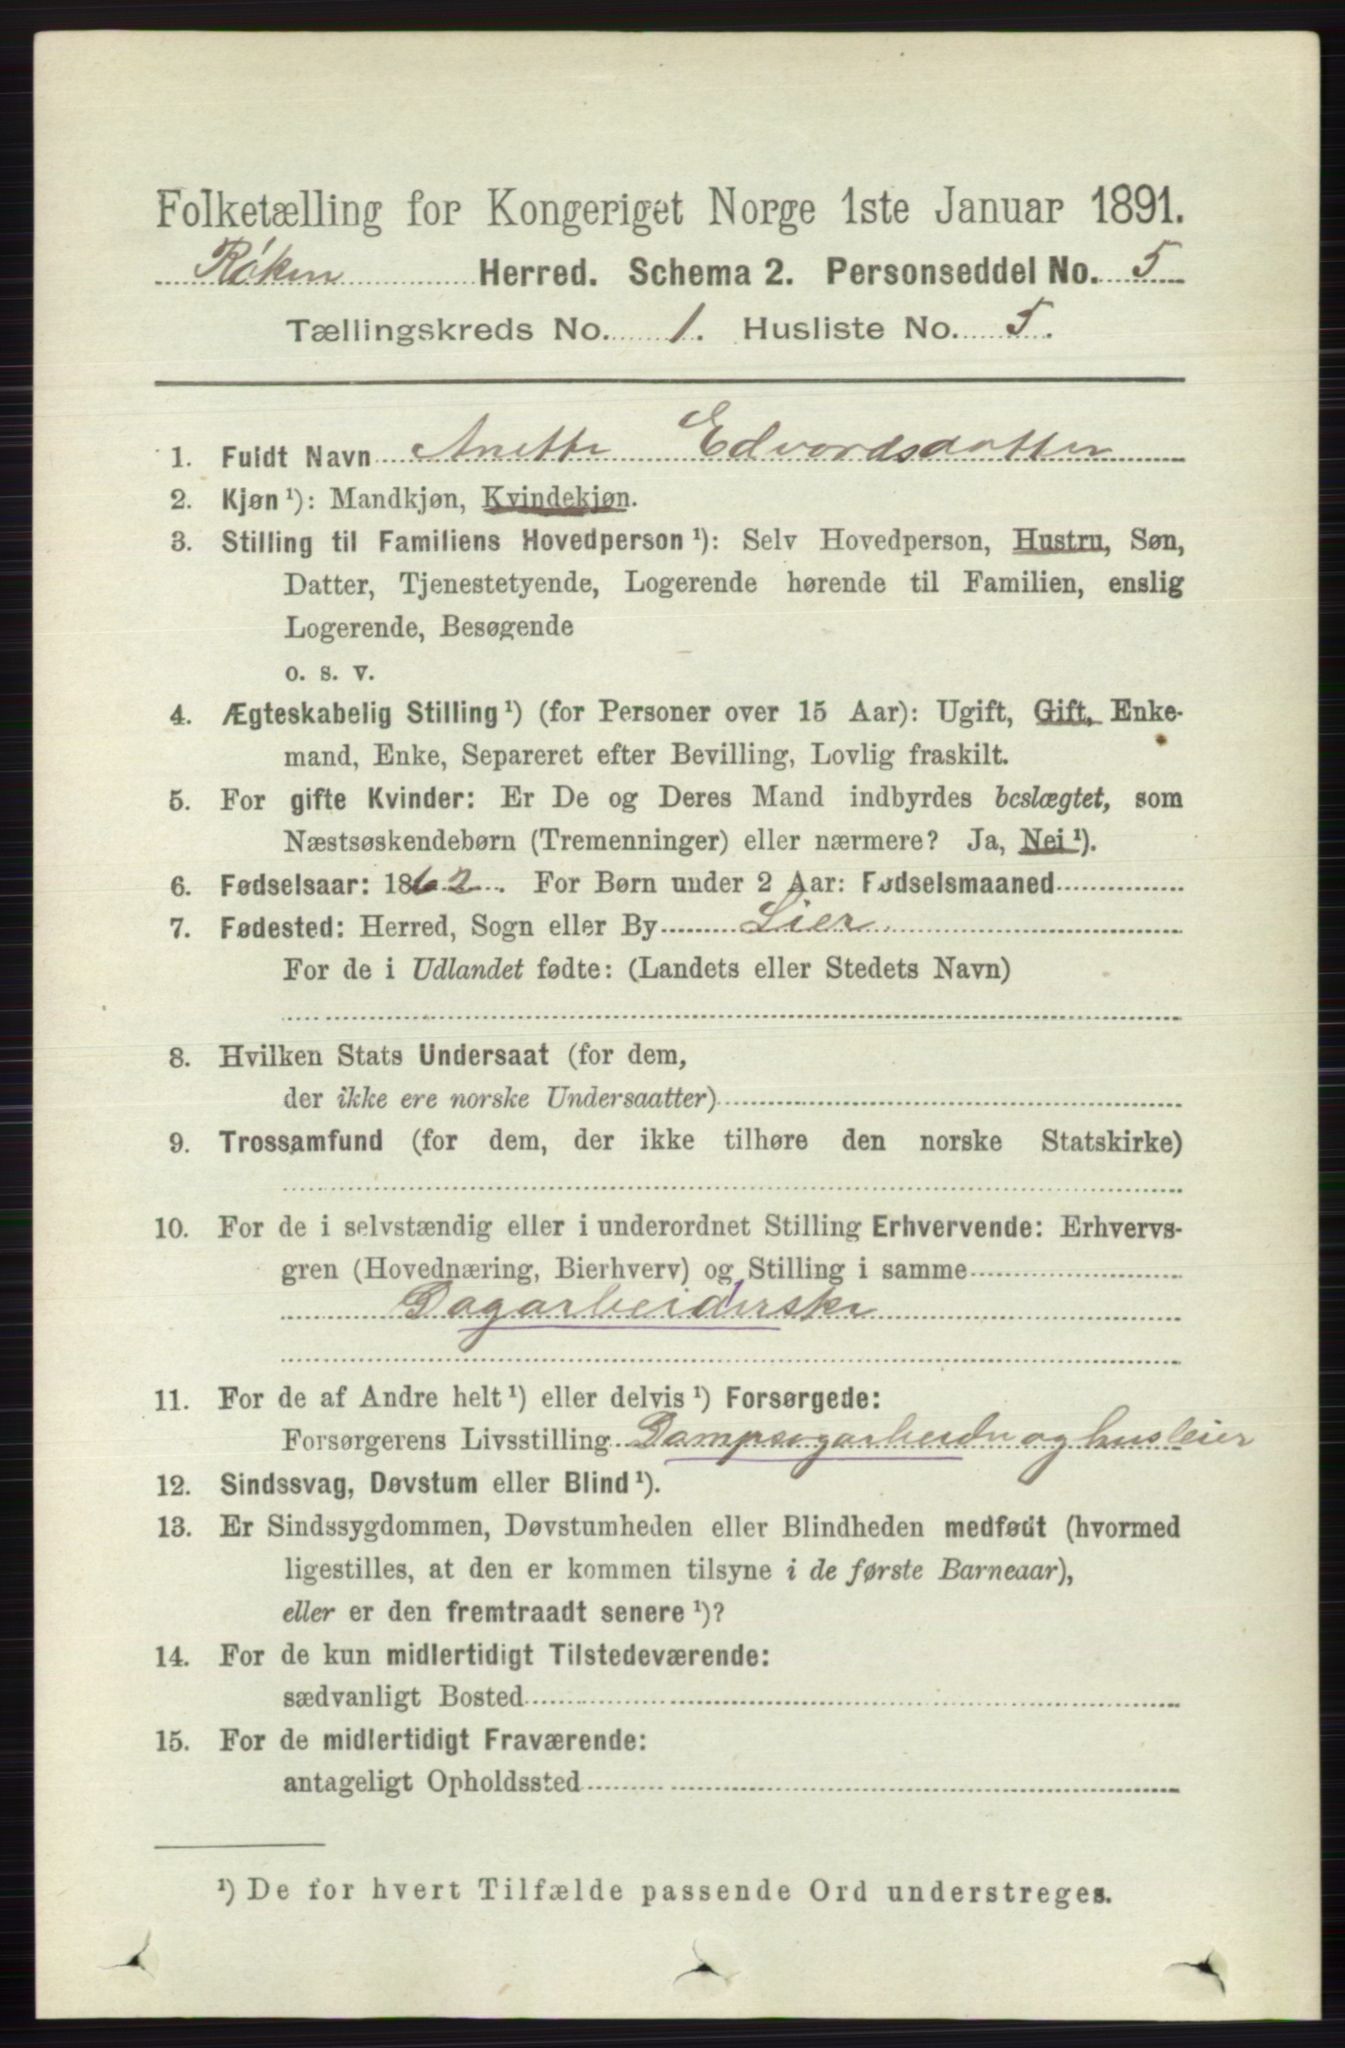 Folketælling for Kongeriget Norge 1ste Januar 1891.
Røken Herred. Schema 2. Personseddel No. 5
Tællingskreds No. 1. Husliste No. 5.
1. Fuldt Navn Anette Edvardsdatter
2. Kjøn ¹): Mandkjøn, Kvindekjøn.
3. Stilling til Familiens Hovedperson ¹): Selv Hovedperson, Hustru, Søn,
Datter, Tjenestetyende, Logerende hørende til Familien, enslig
Logerende, Besøgende
o. s. v.
4. Ægteskabelig Stilling ¹) (for Personer over 15 Aar): Ugift, Gift, Enke-
mand, Enke, Separeret efter Bevilling, Lovlig fraskilt.
5. For gifte Kvinder: Er De og Deres Mand indbyrdes beslægtet, som
Næstsøskendebørn (Tremenninger) eller nærmere? Ja, Nei ¹).
6. Fødselsaar: 1862. For Børn under 2 Aar: Fødselsmaaned
7. Fødested: Herred, Sogn eller By Lier
For de i Udlandet fødte: (Landets eller Stedets Navn)
8. Hvilken Stats Undersaat (for dem,
der ikke ere norske Undersaatter)
9. Trossamfund (for dem, der ikke tilhøre den norske Statskirke)
10. For de i selvstændig eller i underordnet Stilling Erhvervende: Erhvervs-
gren (Hovednæring, Bierhverv) og Stilling i samme
Dagarbeiderske
11. For de af Andre helt ¹) eller delvis ¹) Forsørgede:
Forsørgerens Livsstilling Dampsagarbeider og husleier
12. Sindssvag, Døvstum eller Blind ¹).
13. Er Sindssygdommen, Døvstumheden eller Blindheden medfødt (hvormed
ligestilles, at den er kommen tilsyne i de første Barneaar),
eller er den fremtraadt senere ¹)?
14. For de kun midlertidigt Tilstedeværende:
sædvanligt Bosted
15. For de midlertidigt Fraværende:
antageligt Opholdssted
¹) De for hvert Tilfælde passende Ord understreges.